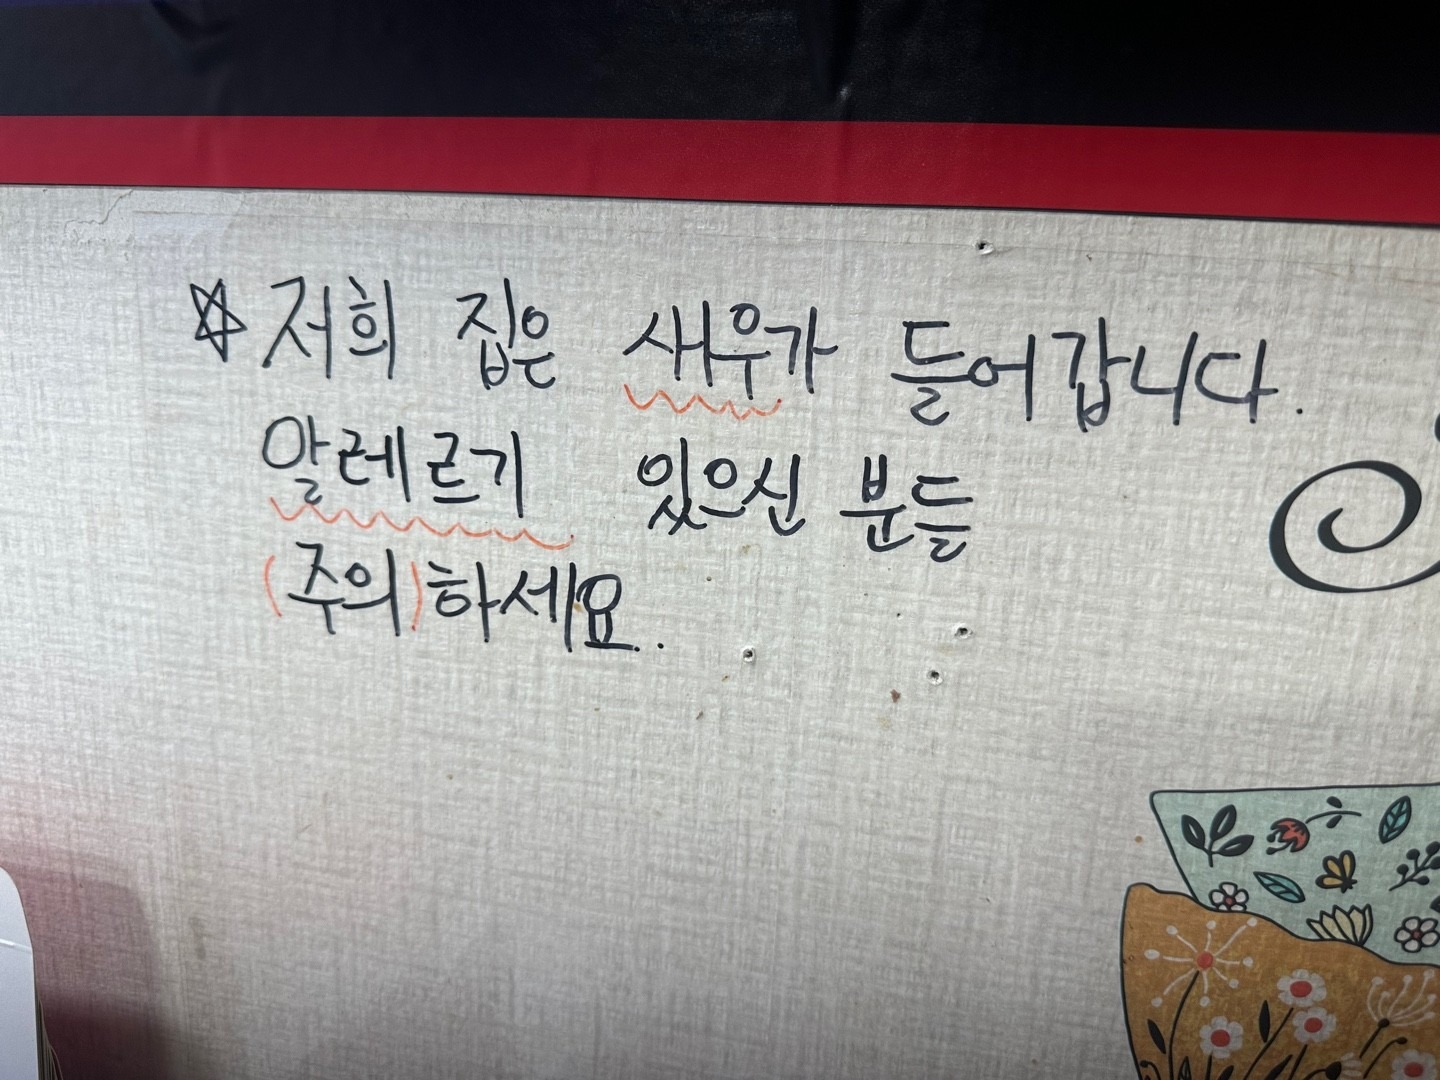 ☆저희 집은 새우가 들어갑니다.
알레르기 있으신 분들
(주의)하세요..